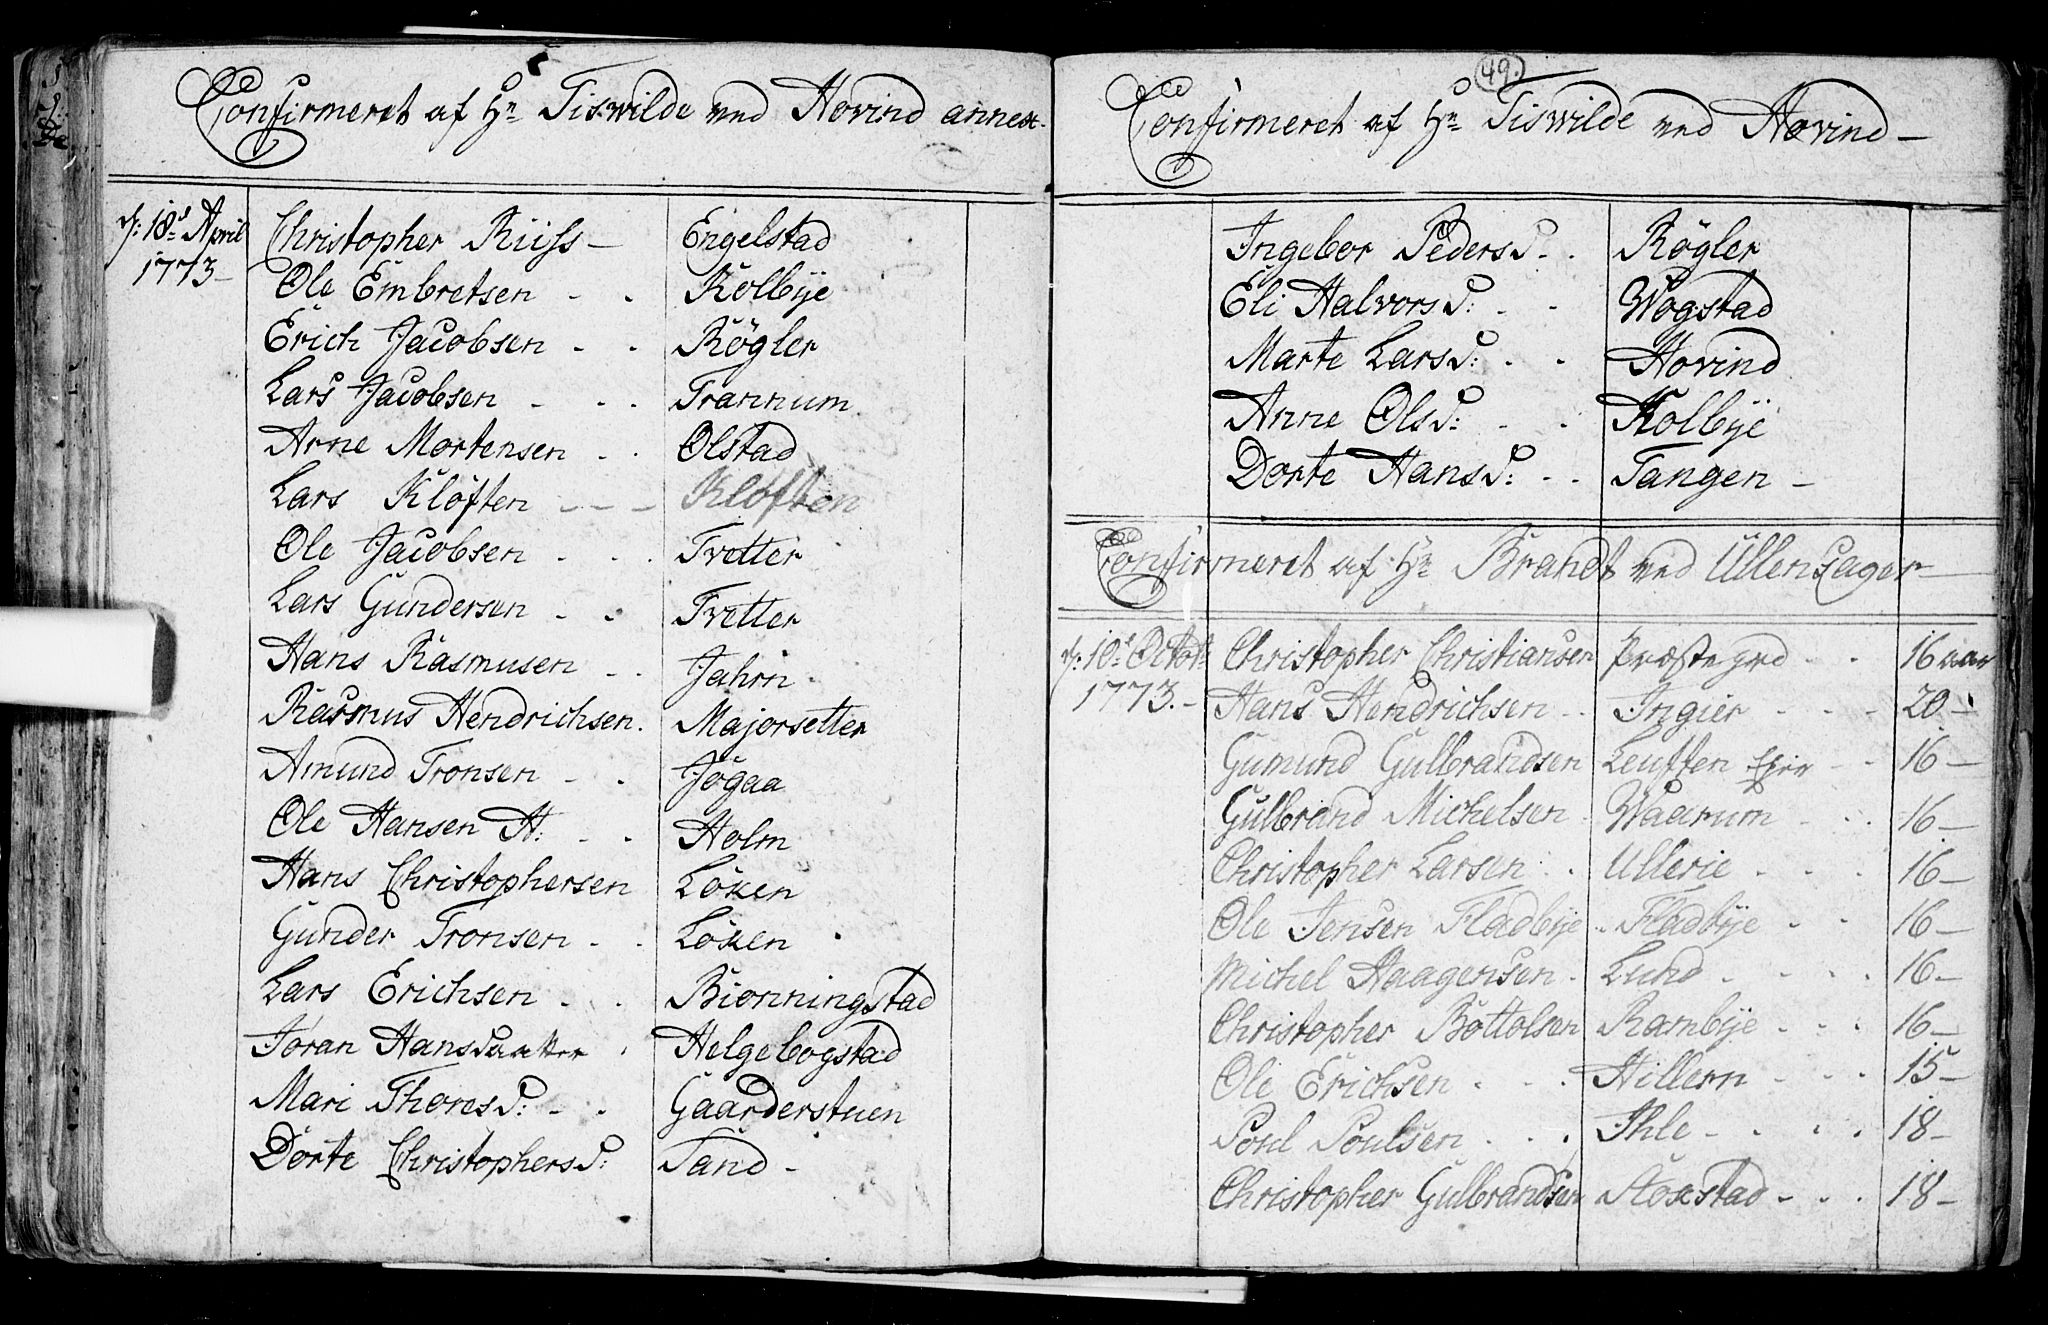 Confirmeret af Hr Tiswilde ved Hovind annex.
d: 18d April Christopher Riiss – Engelstad
1773 – Ole Embretsen - - Kolbÿe
Erich Jacobsen - - Rögler
Lars Jacobsen - - - Trannum
Arne Mortensen - - Olstad
Lars Klöften - - - Klöften
Ole Jacobsen - - - Tvetter
Lars Gundersen - - Tvetter
Hans Rasmusen - - Jahrn
Rasmus Hendrichsen. Majorsetter
Amund Tronsen - - Jögaa
Ole Hansen H: - - Holm
Hans Christophersen Löken
Gunder Tronsen - - Löken
Lars Erichsen - - Bionningstad
Joran Hansdaatter - Helgebogstad
Mari Thoresd: - - Gaarderstuen
Dorte Christophersd: Sand -
49.
Confirmeret af Hr Tiswilde ved Hovind –
Ingebor Pedersd - - Rögler
Eli Halvorsd: - - Wogstad
Marte Larsd: - - Hovind
Anne Olsd: - - Kolbÿe
Dorte Hansd: - - Tangen –
Confirmeret af Hr Brandt ved Ullensager –
d: 10d Octob: Christopher Christiansen Præstegrd - - 16 aar
1773. – Hans Hendrichsen - - Ingier - - - 20 –
Gumund Gulbrandsen Leuffen - - 16 –
Gulbrand Michelsen - Waarum - - - 16 –
Christopher Larsen - - Ullerie - - - 16 –
Ole Jensen Fladbÿe - Fladbÿe - - 16 –
Michel Haagensen - Lund - - - - 16 –
Christopher Bottolsen Rambÿe - - - 16 –
Ole Erichsen - - - Hillern - - - 15 –
Poul Poulsen - - - Ihle - - - - 18 –
Christopher Gulbrandsen Stoxstad - - - 18 –